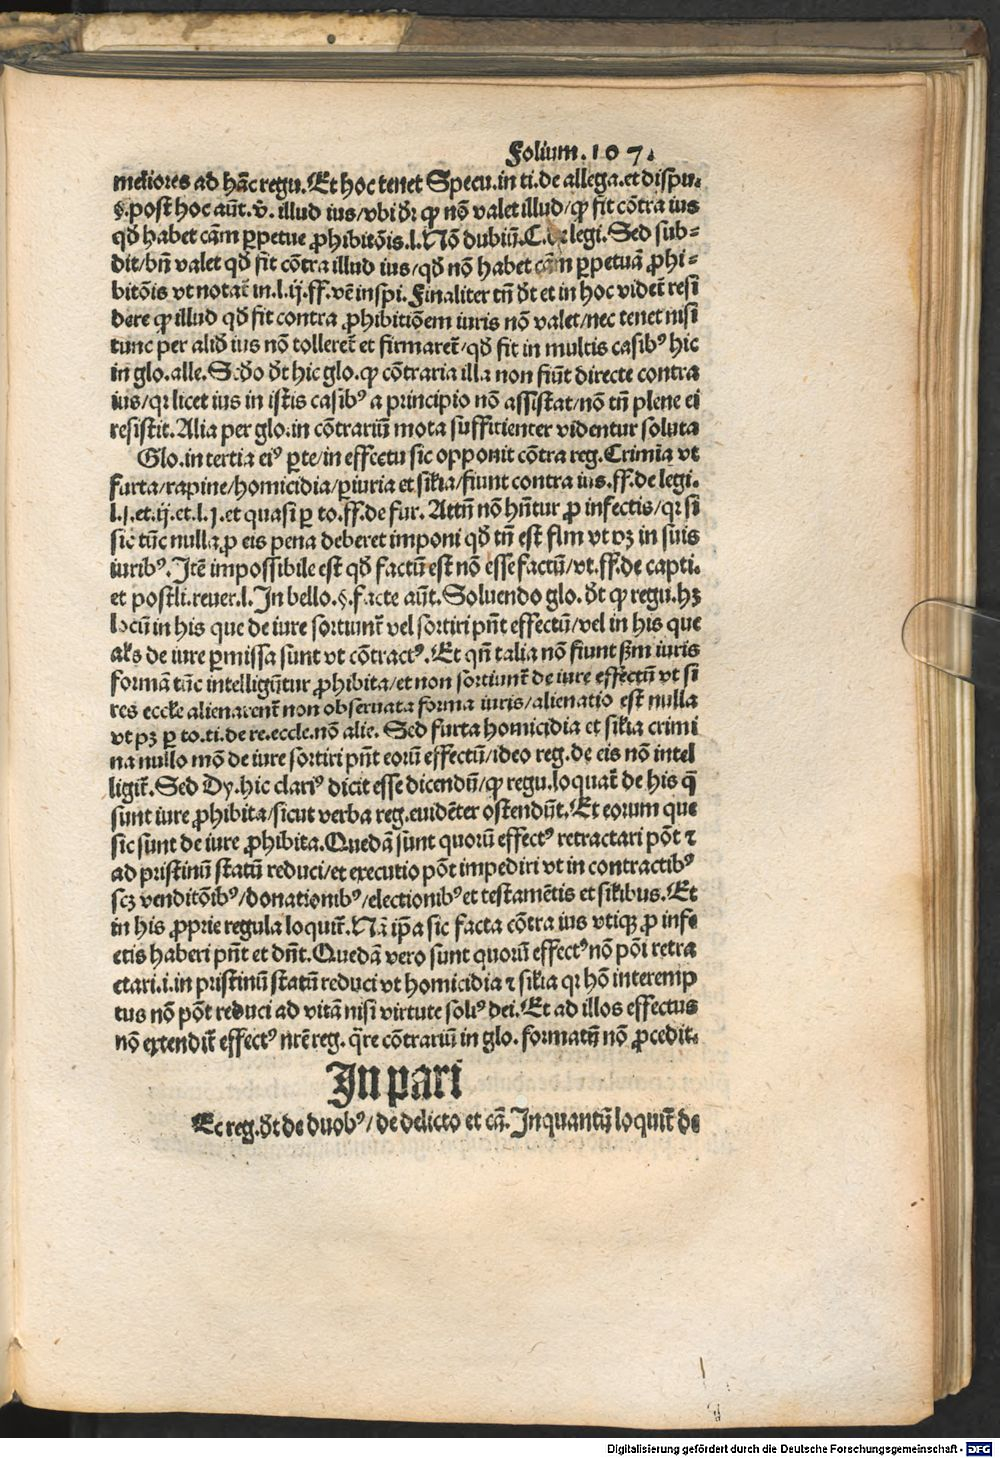 Folium.107.
meliores ad hāc regu. Et hoc tenet Specu. in ti. de allega. et dispu.
§. post hoc aūt. v̄. illud ius/vbi dr̄ ꝙ nō valet illud/ꝙ fit cōtra ius
qd̄ habet cām ꝑpetue ꝓhibitōis. l. Nō dubiū. C. de legi. Sed sub-
dit/bn̄ valet qd̄ fit cōtra illud ius/qd̄ nō habet cām ꝑpetuā ꝓhi-
bitōis vt notat̄ in. l. ij. ff. vē inspi. Finaliter tn̄ dt̄ et in hoc videt̄ resi
dere ꝙ illud qd̄ fit contra ꝓhibitiōem iuris nō valet/nec tenet nisi
tunc per alid̄ ius nō tolleret̄ et firmaret̄/qd̄ fit in multis casibꝰ hic
in glo. alle. Scd̄o dt̄ hic glo. ꝙ cōtraria illa non fiūt directe contra
ius/qr licet ius in istis casibꝰ a principio nō assistat/nō tn̄ plene ei
resistit. Alia per glo. in cōtrariū mota sufficienter videntur soluta
Glo. in tertia eiꝰ ꝑte/in effectu sic opponit cōtra reg. Crimīa vt
furta/rapine/homicidia/ꝑiuria et sil̄ia/fiunt contra ius. ff. de legi.
l. j. et. ij. et. l. J. et quasi ꝑ to. ff. de fur. Attn̄ nō hn̄tur ꝓ infectis/qr si
sic tūc nulla ꝓ eis pena deberet imponi qd̄ tn̄ est flm vt pꝫ in suis
iuribꝰ. Itē impossibile est qd̄ factū est nō esse factū/vt. ff. de capti.
et postli. reuer. l. In bello. §. facte aūt. Soluendo glo. dt̄ ꝙ regu. hꝫ
locū in his que de iure sortiunt̄ vel sortiri pn̄t effectū/vel in his que
al̄s de iure ꝑmissa sunt vt cōtractꝰ. Et qn̄ talia nō fiunt ẜm iuris
formā tūc intelligūtur ꝓhibita/et non sortiunt̄ de iure effectū vt si
res eccl̄e alienarent̄ non obseruata forma iuris/alienatio est nulla
vt pꝫ ꝑ to. ti. de re. eccle. nō alie. Sed furta homicidia et sil̄ia crimi
na nullo mō de iure sortiri pn̄t eorū effectū/ideo reg. de eis nō intel
ligit̄. Sed Dy. hic clariꝰ dicit esse dicendū/ꝙ regu. loquat̄ de his q̄
sunt iure ꝓhibita/sicut verba reg. euidēter ostendūt. Et eorum que
sic sunt de iure ꝓhibita. Quedā sunt quorū effectꝰ retractari pōt ⁊
ad pristinū statū reduci/et executio pōt impediri vt in contractibꝰ
scꝫ venditōibꝰ/donationibꝰ/electionibꝰ et testamētis et sil̄ibus. Et
in his ꝓprie regula loquit̄. Nā ip̄a sic facta cōtra ius vtiqꝫ ꝓ infe
ctis haberi pn̄t et dn̄t. Quedā vero sunt quorū effectꝰ nō pōt retra
ctari. i. in pristinū statū reduci vt homicidia ⁊ sil̄ia qr hō interemp
tus nō pōt reduci ad vitā nisi virtute soliꝰ dei. Et ad illos effectus
nō extendit̄ effectꝰ nr̄e reg. q̄re cōtrariū in glo. formatū nō ꝓcedit.
In pari
Ec reg. dt̄ de duobꝰ/de delicto et cā. Inquantū loquit̄ de
Digitalisierung gefördert durch die Deutsche Forschungsgemeinschaft - DFG